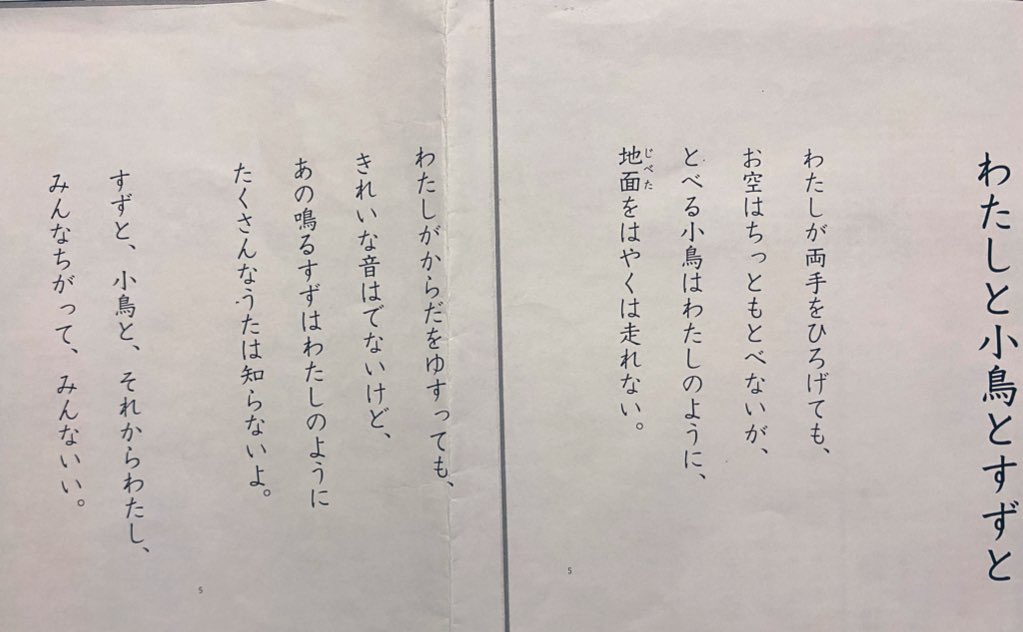 わたしと小鳥とすずと
わたしが両手をひろげても、
お空はちっともとべないが、
とべる小鳥はわたしのように、
地面をはやくは走れない。
じべた
5
わたしがからだをゆすっても、
きれいな音はでないけど、
あの鳴るすずはわたしのように
たくさんなうたは知らないよ。
すずと、小鳥と、それからわたし、
みんなちがって、みんないい。
5